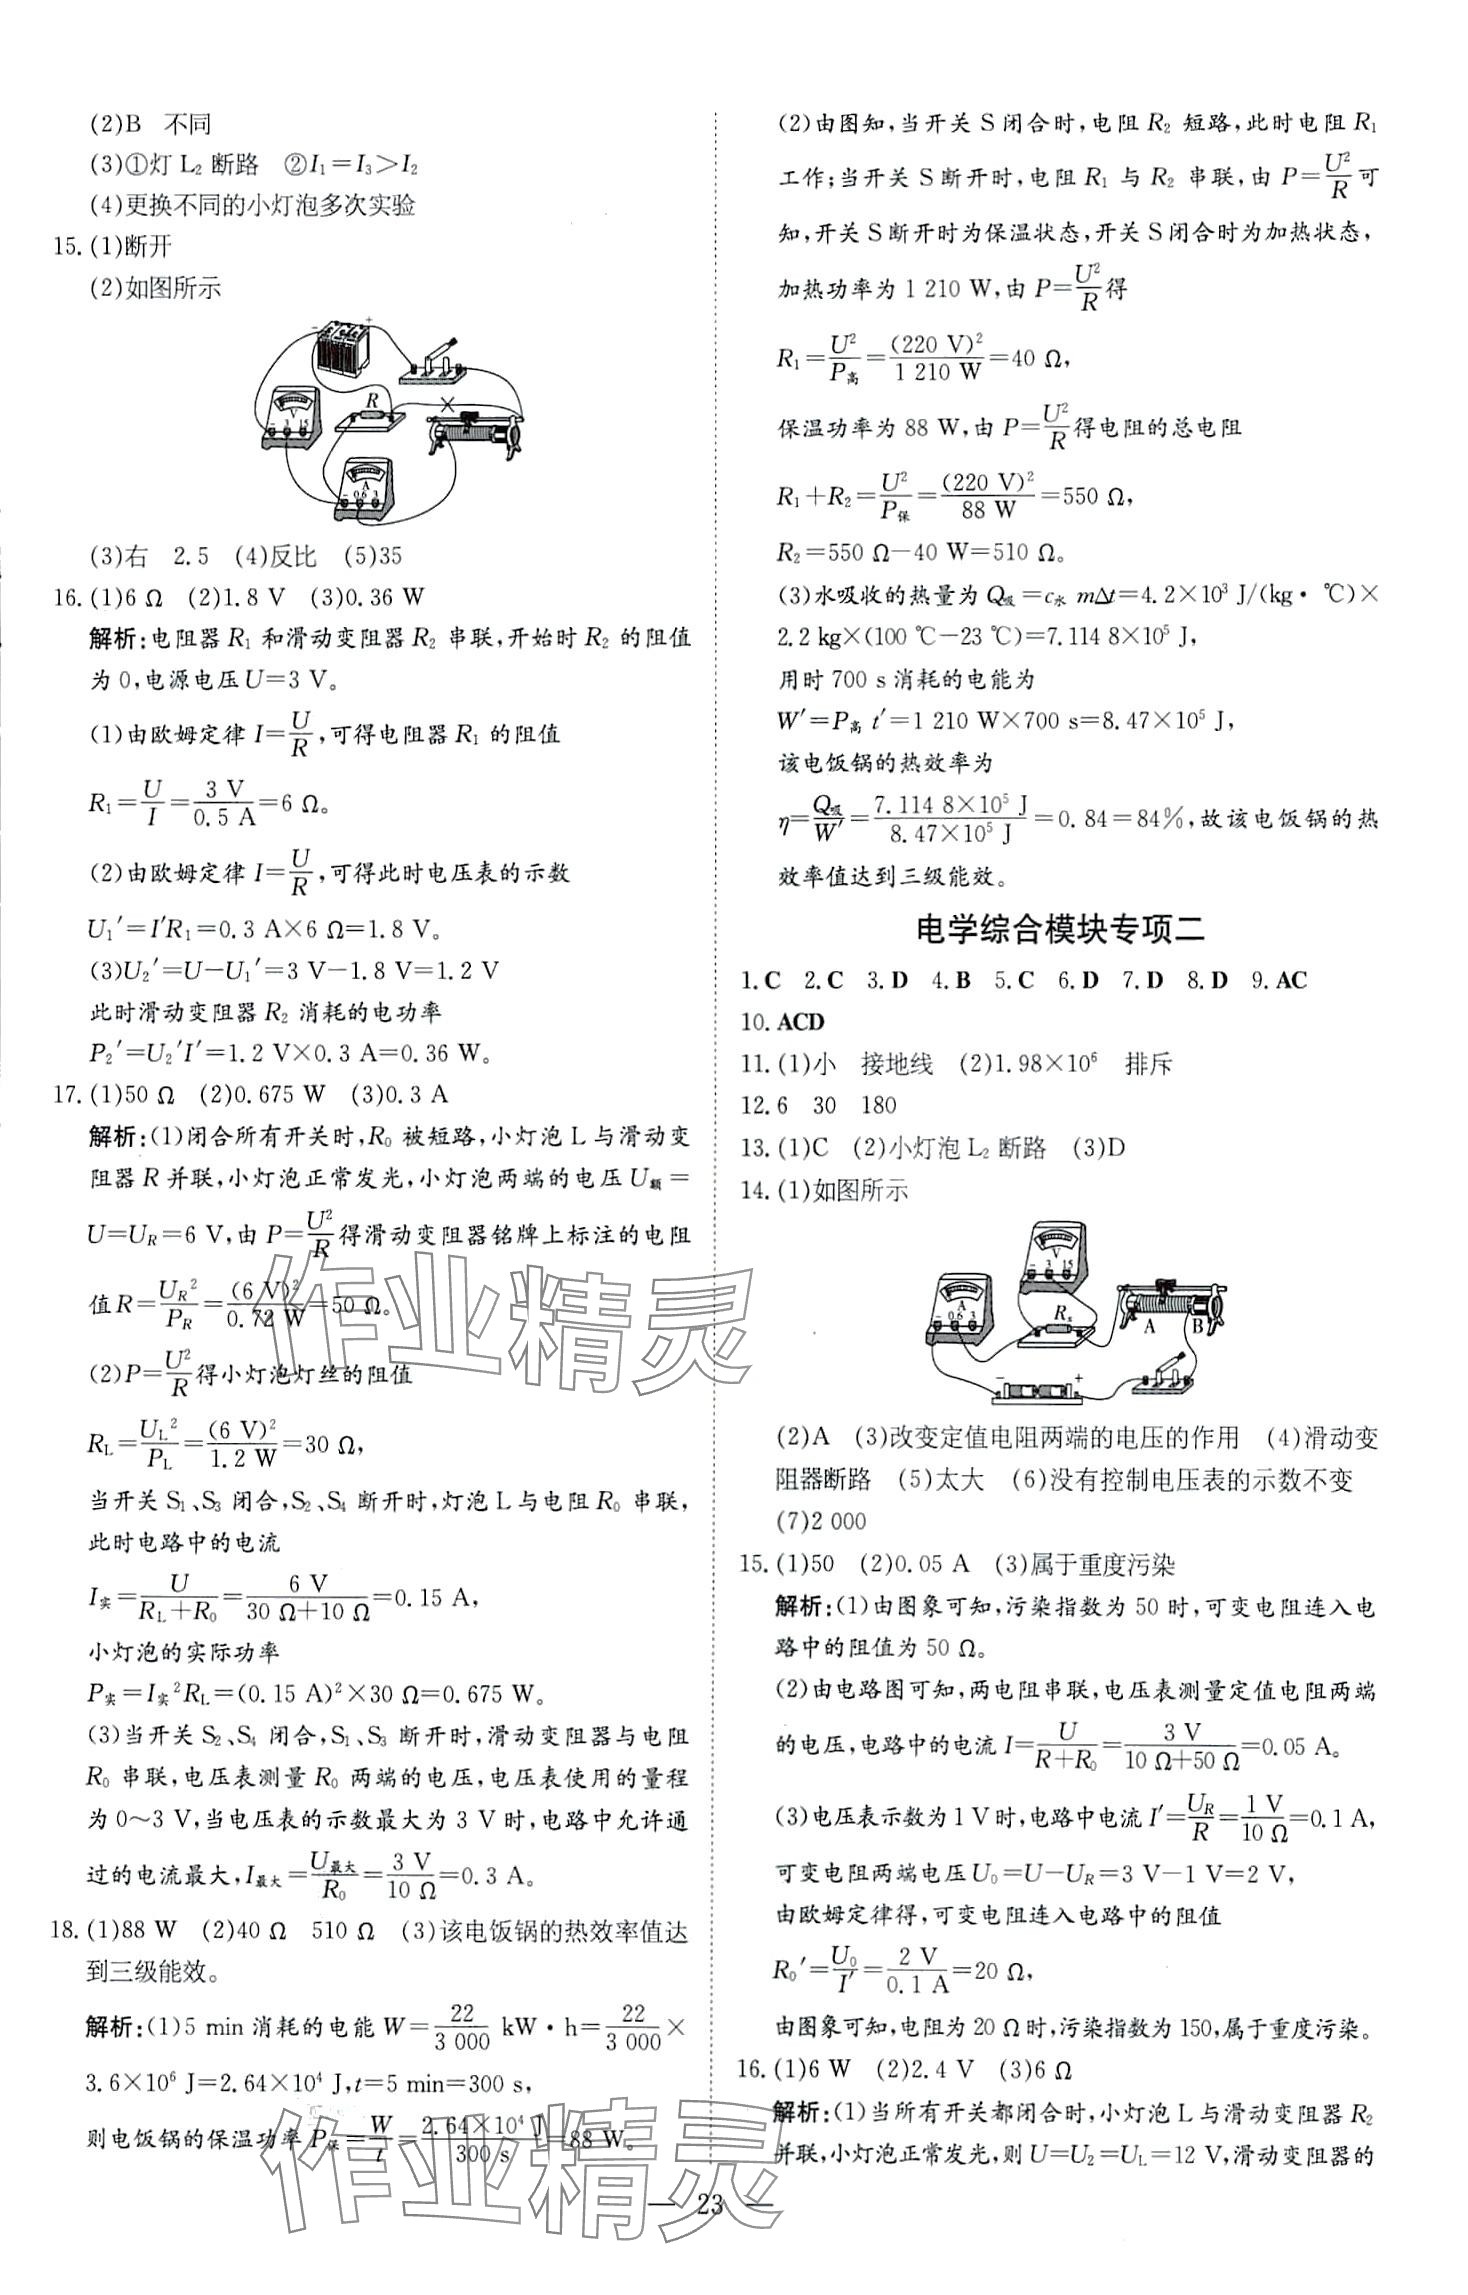 (2)B 不同
(3)①灯 L₂ 断路 ②I₁=I₃>I₂
(4)更换不同的小灯泡多次实验
15.(1)断开
(2)如图所示
− + R × V − 3 15 A − 0.6 3
(3)右 2.5 (4)反比 (5)35
16.(1)6 Ω (2)1.8 V (3)0.36 W
解析:电阻器 R₁ 和滑动变阻器 R₂ 串联,开始时 R₂ 的阻值
为 0,电源电压 U=3 V。
(1)由欧姆定律 I=U/R,可得电阻器 R₁ 的阻值
R₁=U/I=3 V/0.5 A=6 Ω。
(2)由欧姆定律 I=U/R,可得此时电压表的示数
U₁′=I′R₁=0.3 A×6 Ω=1.8 V。
(3)U₂′=U−U₁′=3 V−1.8 V=1.2 V
此时滑动变阻器 R₂ 消耗的电功率
P₂′=U₂′I′=1.2 V×0.3 A=0.36 W。
17.(1)50 Ω (2)0.675 W (3)0.3 A
解析:(1)闭合所有开关时,R₀ 被短路,小灯泡 L 与滑动变
阻器 R 并联,小灯泡正常发光,小灯泡两端的电压 U额=
U=U_R=6 V,由 P=U²/R得滑动变阻器铭牌上标注的电阻
值 R=U_R²/P_R=(6 V)²/0.72 W=50 Ω。
(2)P=U²/R得小灯泡灯丝的阻值
R_L=U_L²/P_L=(6 V)²/1.2 W=30 Ω,
当开关 S₁、S₃ 闭合,S₂、S₄ 断开时,灯泡 L 与电阻 R₀ 串联,
此时电路中的电流
I实=U/(R_L+R₀)=6 V/(30 Ω+10 Ω)=0.15 A,
小灯泡的实际功率
P实=I实²R_L=(0.15 A)²×30 Ω=0.675 W。
(3)当开关 S₂、S₄ 闭合,S₁、S₃ 断开时,滑动变阻器与电阻
R₀ 串联,电压表测量 R₀ 两端的电压,电压表使用的量程
为 0～3 V,当电压表的示数最大为 3 V 时,电路中允许通
过的电流最大,I最大=U最大/R₀=3 V/10 Ω=0.3 A。
18.(1)88 W (2)40 Ω 510 Ω (3)该电饭锅的热效率值达
到三级能效。
解析:(1)5 min 消耗的电能 W=22/3 000 kW·h=22/3 000×
3.6×10⁶ J=2.64×10⁴ J,t=5 min=300 s,
则电饭锅的保温功率 P保=W/t=2.64×10⁴ J/300 s=88 W。
(2)由图知,当开关 S 闭合时,电阻 R₂ 短路,此时电阻 R₁
工作;当开关 S 断开时,电阻 R₁ 与 R₂ 串联,由 P=U²/R可
知,开关 S 断开时为保温状态,开关 S 闭合时为加热状态,
加热功率为 1 210 W,由 P=U²/R得
R₁=U²/P高=(220 V)²/1 210 W=40 Ω,
保温功率为 88 W,由 P=U²/R得电阻的总电阻
R₁+R₂=U²/P保=(220 V)²/88 W=550 Ω,
R₂=550 Ω−40 W=510 Ω。
(3)水吸收的热量为 Q吸=c水 mΔt=4.2×10³ J/(kg·℃)×
2.2 kg×(100 ℃−23 ℃)=7.114 8×10⁵ J,
用时 700 s 消耗的电能为
W′=P高 t′=1 210 W×700 s=8.47×10⁵ J,
该电饭锅的热效率为
η=Q吸/W′=7.114 8×10⁵ J/8.47×10⁵ J=0.84=84%,故该电饭锅的热
效率值达到三级能效。
电学综合模块专项二
1.C 2.C 3.D 4.B 5.C 6.D 7.D 8.D 9.AC
10.ACD
11.(1)小 接地线 (2)1.98×10⁶ 排斥
12.6 30 180
13.(1)C (2)小灯泡 L₂ 断路 (3)D
14.(1)如图所示
V − 3 15 A − 0.6 3 Rₓ A B − +
(2)A (3)改变定值电阻两端的电压的作用 (4)滑动变
阻器断路 (5)太大 (6)没有控制电压表的示数不变
(7)2 000
15.(1)50 (2)0.05 A (3)属于重度污染
解析:(1)由图象可知,污染指数为 50 时,可变电阻连入电
路中的阻值为 50 Ω。
(2)由电路图可知,两电阻串联,电压表测量定值电阻两端
的电压,电路中的电流 I=U/(R+R₀)=3 V/(10 Ω+50 Ω)=0.05 A。
(3)电压表示数为 1 V 时,电路中电流 I′=U_R/R=1 V/10 Ω=0.1 A,
可变电阻两端电压 U₀=U−U_R=3 V−1 V=2 V,
由欧姆定律得,可变电阻连入电路中的阻值
R₀′=U₀/I′=2 V/0.1 A=20 Ω,
由图象可知,电阻为 20 Ω 时,污染指数为 150,属于重度污染。
16.(1)6 W (2)2.4 V (3)6 Ω
解析:(1)当所有开关都闭合时,小灯泡 L 与滑动变阻器 R₂
并联,小灯泡正常发光,则 U=U₂=U_L=12 V,滑动变阻器的
— 23 —
作业精灵
作业精灵